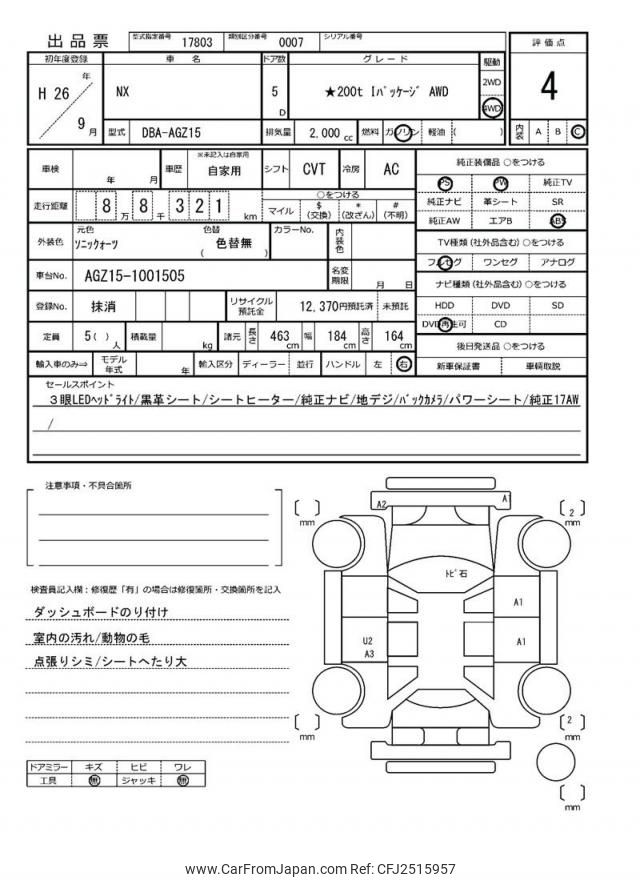 出品票 型式指定番号 17803 類別区分番号 0007 シリアル番号
評価点
4
内装 A B C
初年度登録 車名 ドア数 グレード 駆動
H 26 年 9 月
NX
5 D
★200t Iパッケージ AWD
2WD
4WD
型式 DBA-AGZ15 排気量 2,000 cc 燃料 ガソリン 軽油 ( )
車検 年 月 車歴 ※未記入は自家用 自家用 シフト CVT 冷房 AC
走行距離 8 万 8 千 3 2 1 km
○をつける
マイル $(交換) *(改ざん) #(不明)
外装色 元色 ソニックォーツ 色替 ( 色替無 ) カラーNo. 内装色
車台No. AGZ15-1001505 名変期限 月 日
登録No. 抹消 リサイクル預託金 12,370円預託済 未預託
定員 5( ) 人 積載量 kg 諸元 長さ 463 cm 幅 184 cm 高さ 164 cm
輸入車のみ⇒ モデル年式 年 輸入区分 ディーラー 並行 ハンドル 左 右
純正装備品 ○をつける
PS PW 純正TV
純正ナビ 革シート SR
純正AW エアB ABS
TV種類(社外品含む)○をつける
フルセグ ワンセグ アナログ
ナビ種類(社外品含む)○をつける
HDD DVD SD
DVD再生可 CD
後日発送品 ○をつける
新車保証書 車輌取説
セールスポイント
3眼LEDヘッドライト/黒革シート/シートヒーター/純正ナビ/地デジ/バックカメラ/パワーシート/純正17AW
/
注意事項・不具合箇所
検査員記入欄:修復歴「有」の場合は修復箇所・交換箇所を記入
ダッシュボードのり付け
室内の汚れ/動物の毛
点張りシミ/シートへたり大
ドアミラー キズ ヒビ ワレ
工具 無 ジャッキ 無
A2 A1
[ ] mm
[ 2 ] mm
トビ石
A1
U2
A3
A1
[ ] mm
[ 2 ] mm
[ ] mm
www.CarFromJapan.com Ref: CFJ2515957